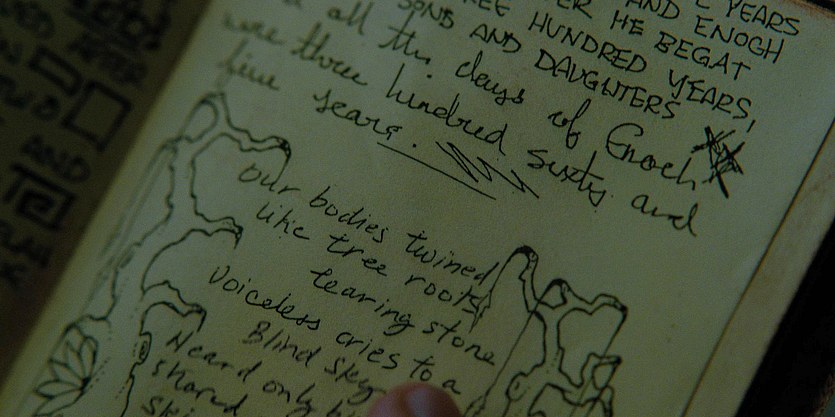 AFTER
AND
YEARS
AND ENOCH
HE BEGAT
HUNDRED YEARS,
SONS AND DAUGHTERS
all the days of Enoch
were three hindred sixty and
five years.
Our bodies twined
like tree roots
tearing stone
Voiceless cries to a
Blind sky
Heard only
shared